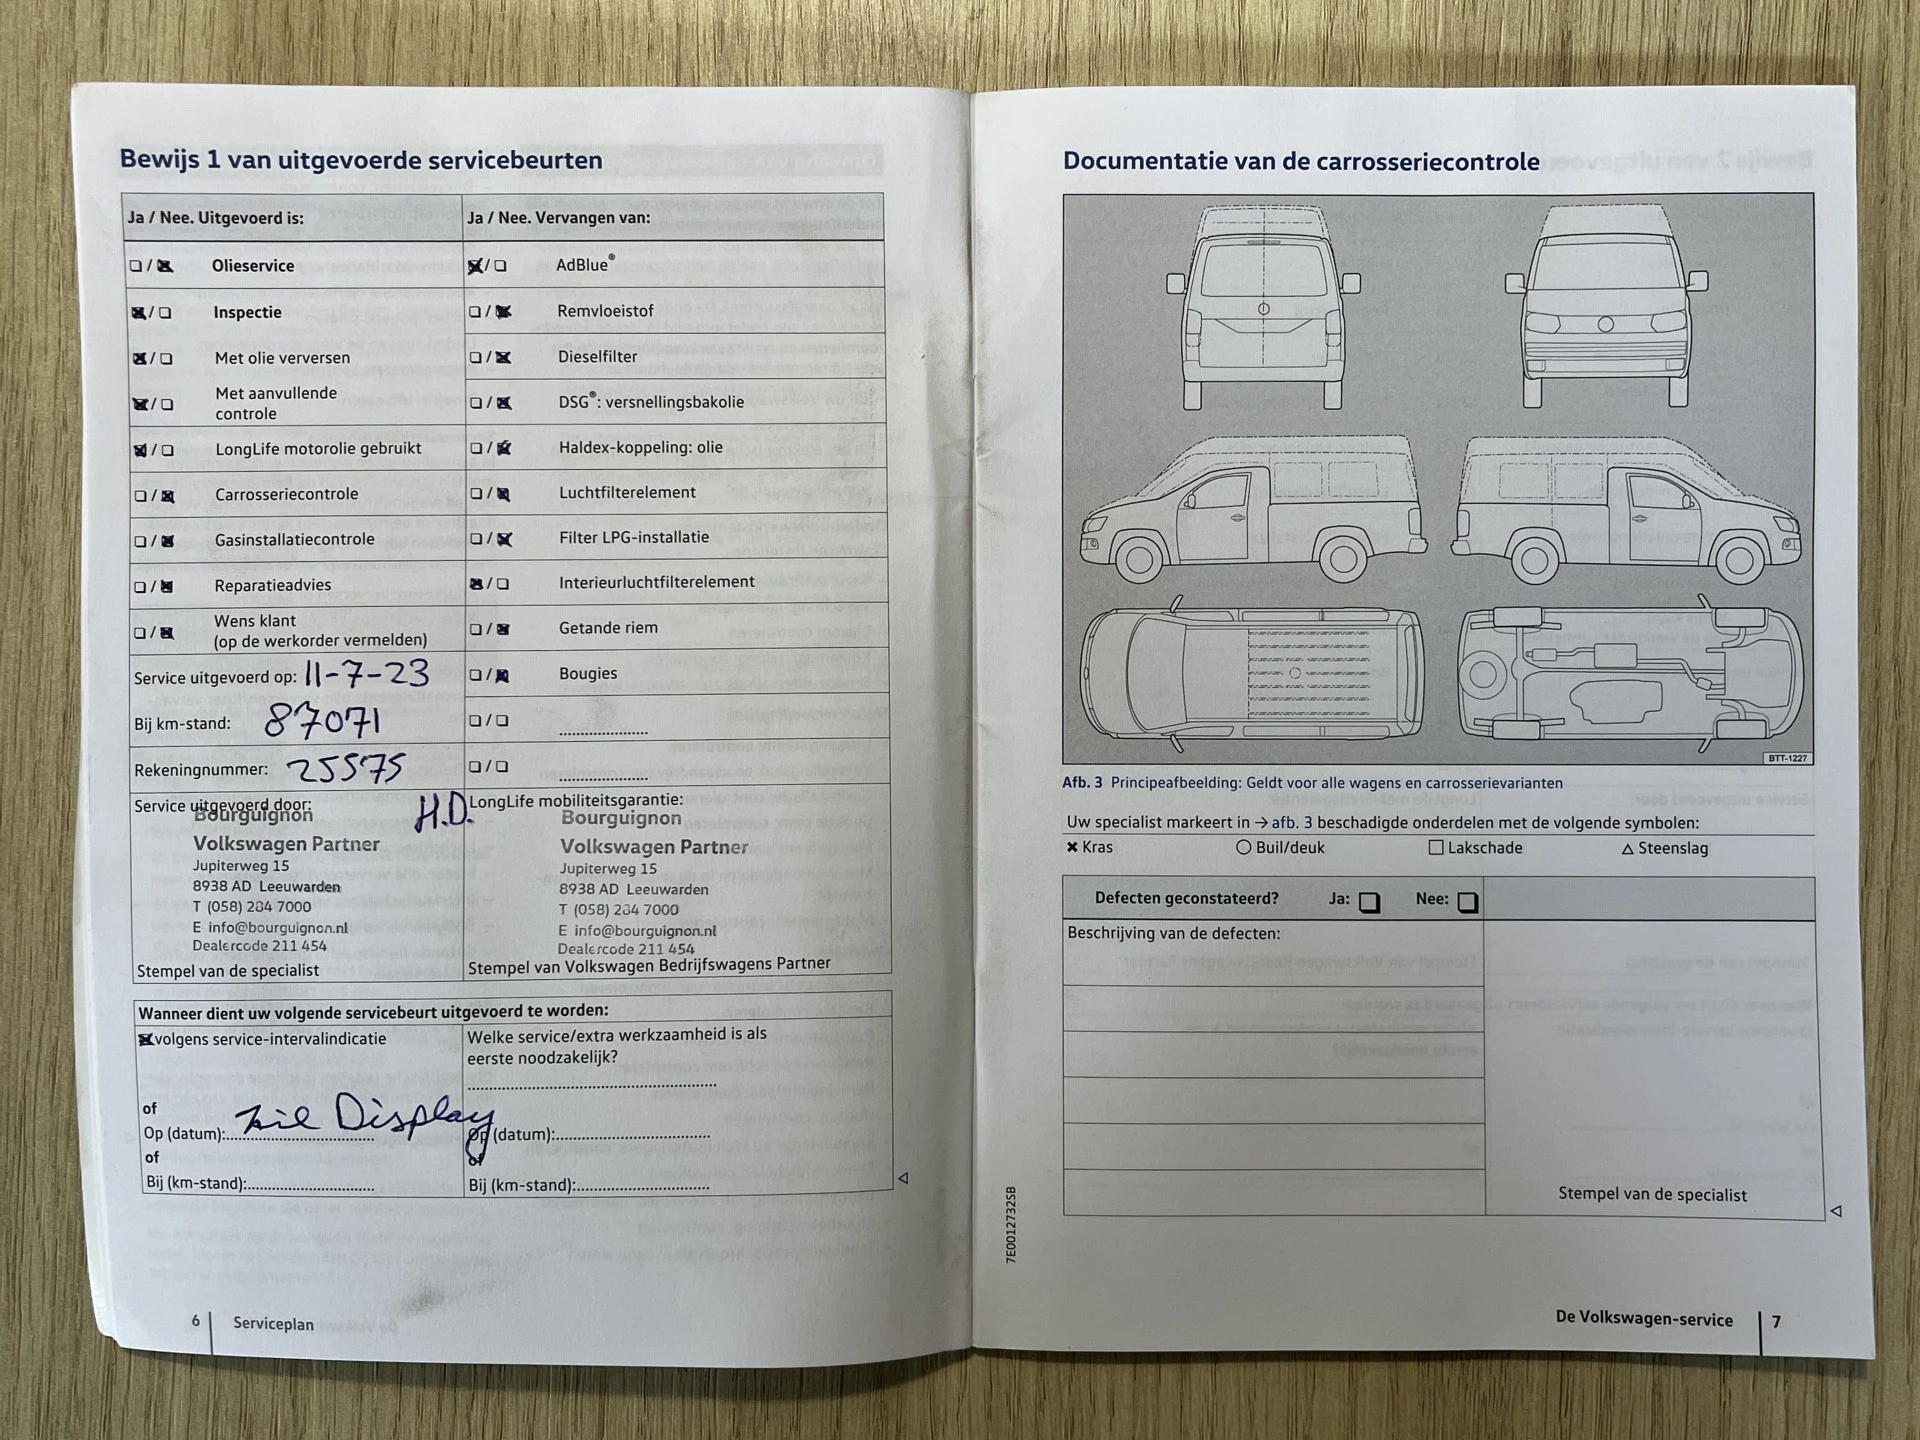 Bewijs 1 van uitgevoerde servicebeurten
Ja / Nee. Uitgevoerd is:
Olieservice
Inspectie
Met olie verversen
Met aanvullende
controle
LongLife motorolie gebruikt
Carrosseriecontrole
Gasinstallatiecontrole
Reparatieadvies
Wens klant
(op de werkorder vermelden)
Service uitgevoerd op: 11-7-23
Bij km-stand: 87071
Rekeningnummer: 25575
Service uitgevoerd door: H.D.
Bourguignon
Volkswagen Partner
Jupiterweg 15
8938 AD Leeuwarden
T (058) 284 7000
E info@bourguignon.nl
Dealercode 211 454
Stempel van de specialist
Ja / Nee. Vervangen van:
AdBlue®
Remvloeistof
Dieselfilter
DSG®: versnellingsbakolie
Haldex-koppeling: olie
Luchtfilterelement
Filter LPG-installatie
Interieurluchtfilterelement
Getande riem
Bougies
LongLife mobiliteitsgarantie:
Bourguignon
Volkswagen Partner
Jupiterweg 15
8938 AD Leeuwarden
T (058) 284 7000
E info@bourguignon.nl
Dealercode 211 454
Stempel van Volkswagen Bedrijfswagens Partner
Wanneer dient uw volgende servicebeurt uitgevoerd te worden:
volgens service-intervalindicatie
of
Op (datum): Display
of
Bij (km-stand):
Welke service/extra werkzaamheid is als
eerste noodzakelijk?
Op (datum):
of
Bij (km-stand):
6 Serviceplan
Documentatie van de carrosseriecontrole
BTT-1227
Afb. 3 Principeafbeelding: Geldt voor alle wagens en carrosserievarianten
Uw specialist markeert in → afb. 3 beschadigde onderdelen met de volgende symbolen:
✖ Kras ○ Buil/deuk □ Lakschade △ Steenslag
Defecten geconstateerd? Ja: Nee:
Beschrijving van de defecten:
Stempel van de specialist
7E0012732SB
De Volkswagen-service 7